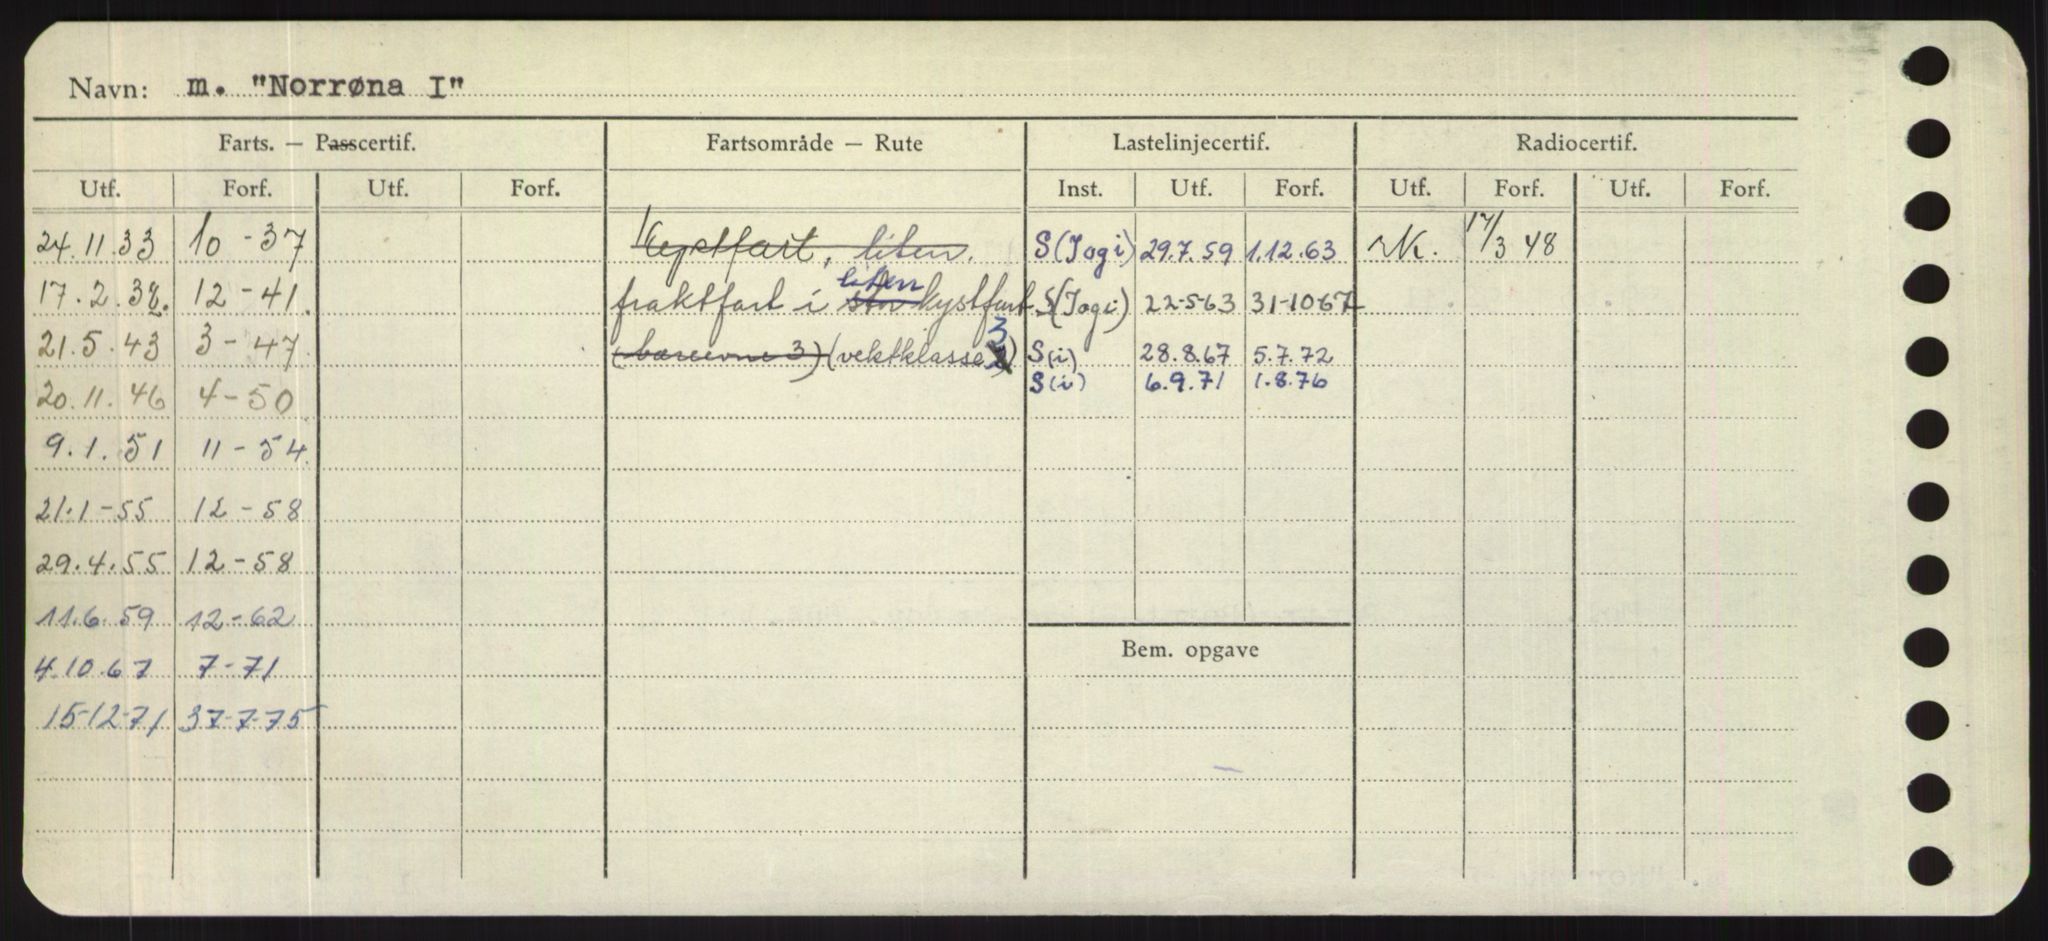 Navn: m. "Norrøna I"
Farts. — Passcertif. Fartsområde — Rute Lastelinjecertif. Radiocertif.
Utf. Forf. Utf. Forf. Inst. Utf. Forf. Utf. Forf. Utf. Forf.
24.11.33 10-37 Kystfart, liten. S(Jogi) 29.7.59 1.12.63 NK. 17/3 48
liten
17.2.38. 12-41. fraktfart i stor kystfart S(Jogi) 22-5-63 31-10-67
3
21.5.43 3-47. (bæreevne 3) (vektklasse 2) S(i) 28.8.67 5.7.72
20.11.46 4-50 S(i) 6.9.71 1.8.76
9.1.51 11-54.
21.1-55 12-58
29.4.55 12-58
11.6.59 12-62
Bem. opgave
4.10.67 7-71
15-12-71 37-7-75